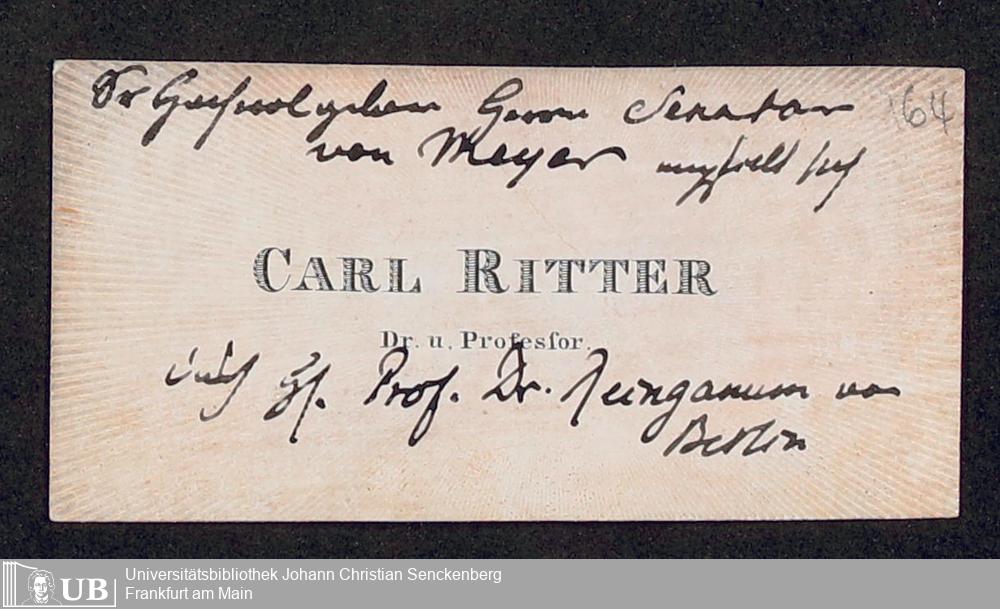 Sr Hochwolgeboren Herrn Senator
64
von Meyer empfielt sich
CARL RITTER
Dr. u. Profeſsor.
durch H. Prof. Dr. Reinganum von
Berlin
UB
Universitätsbibliothek Johann Christian Senckenberg
Frankfurt am Main